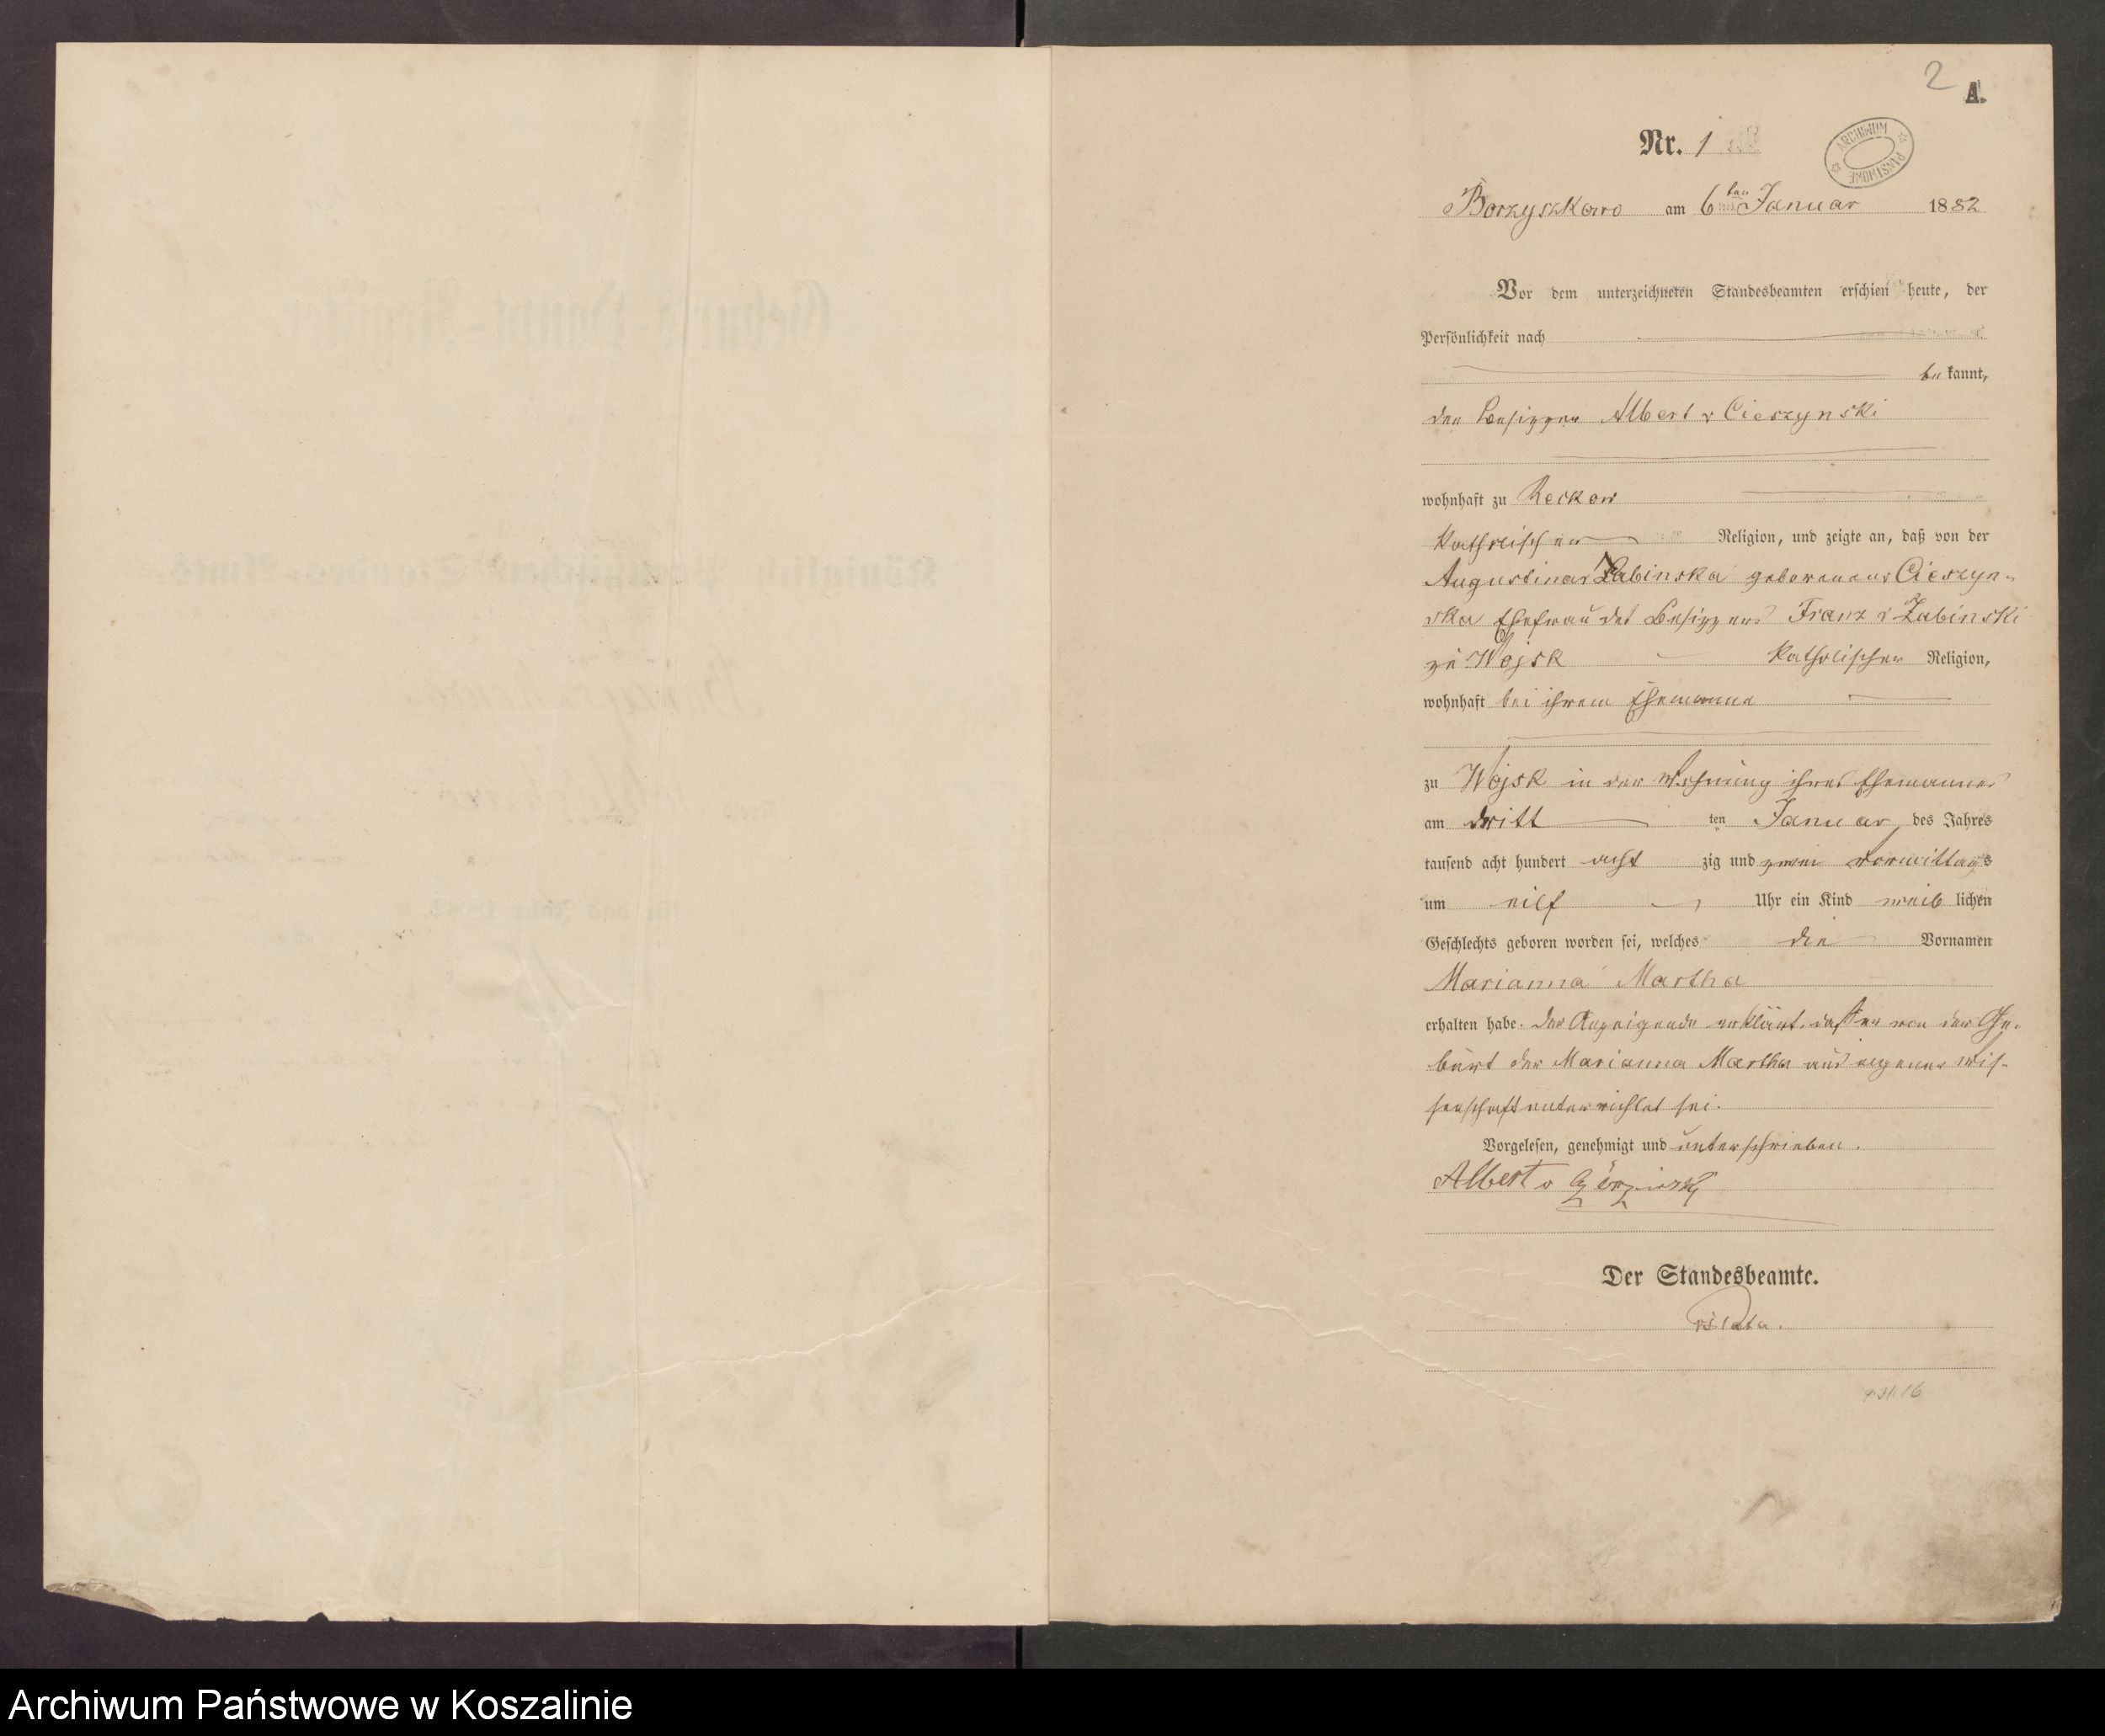 2
A.
ARCHIWUM PAŃSTWOWE
Nr. 1
Borzyszkowo am 6ten Januar 1882
Vor dem unterzeichneten Standesbeamten erschien heute, der
Persönlichkeit nach
be kannt,
der Besizzer Albert v Cieszynski
wohnhaft zu Reckow
Katholischer Religion, und zeigte an, daß von der
Augustina v Zabinska geborenen v Cieszyn-
ska Ehefrau des Besizzers Franz v Zabinski
zu Wojsk Katholischer Religion,
wohnhaft bei ihrem Ehemanne
zu Wojsk in der Wohnung ihres Ehemannes
am dritt ten Januar des Jahres
tausend acht hundert acht zig und zwei vormittags
um eilf Uhr ein Kind weib lichen
Geschlechts geboren worden sei, welches die Vornamen
Marianna Martha
erhalten habe. Der Anzeigende erklärt, daß er von der Ge-
burt der Marianna Martha aus eigener Wis-
senschaft unterrichtet sei.
Vorgelesen, genehmigt und unterschrieben.
Albert v
Der Standesbeamte.
Archiwum Państwowe w Koszalinie